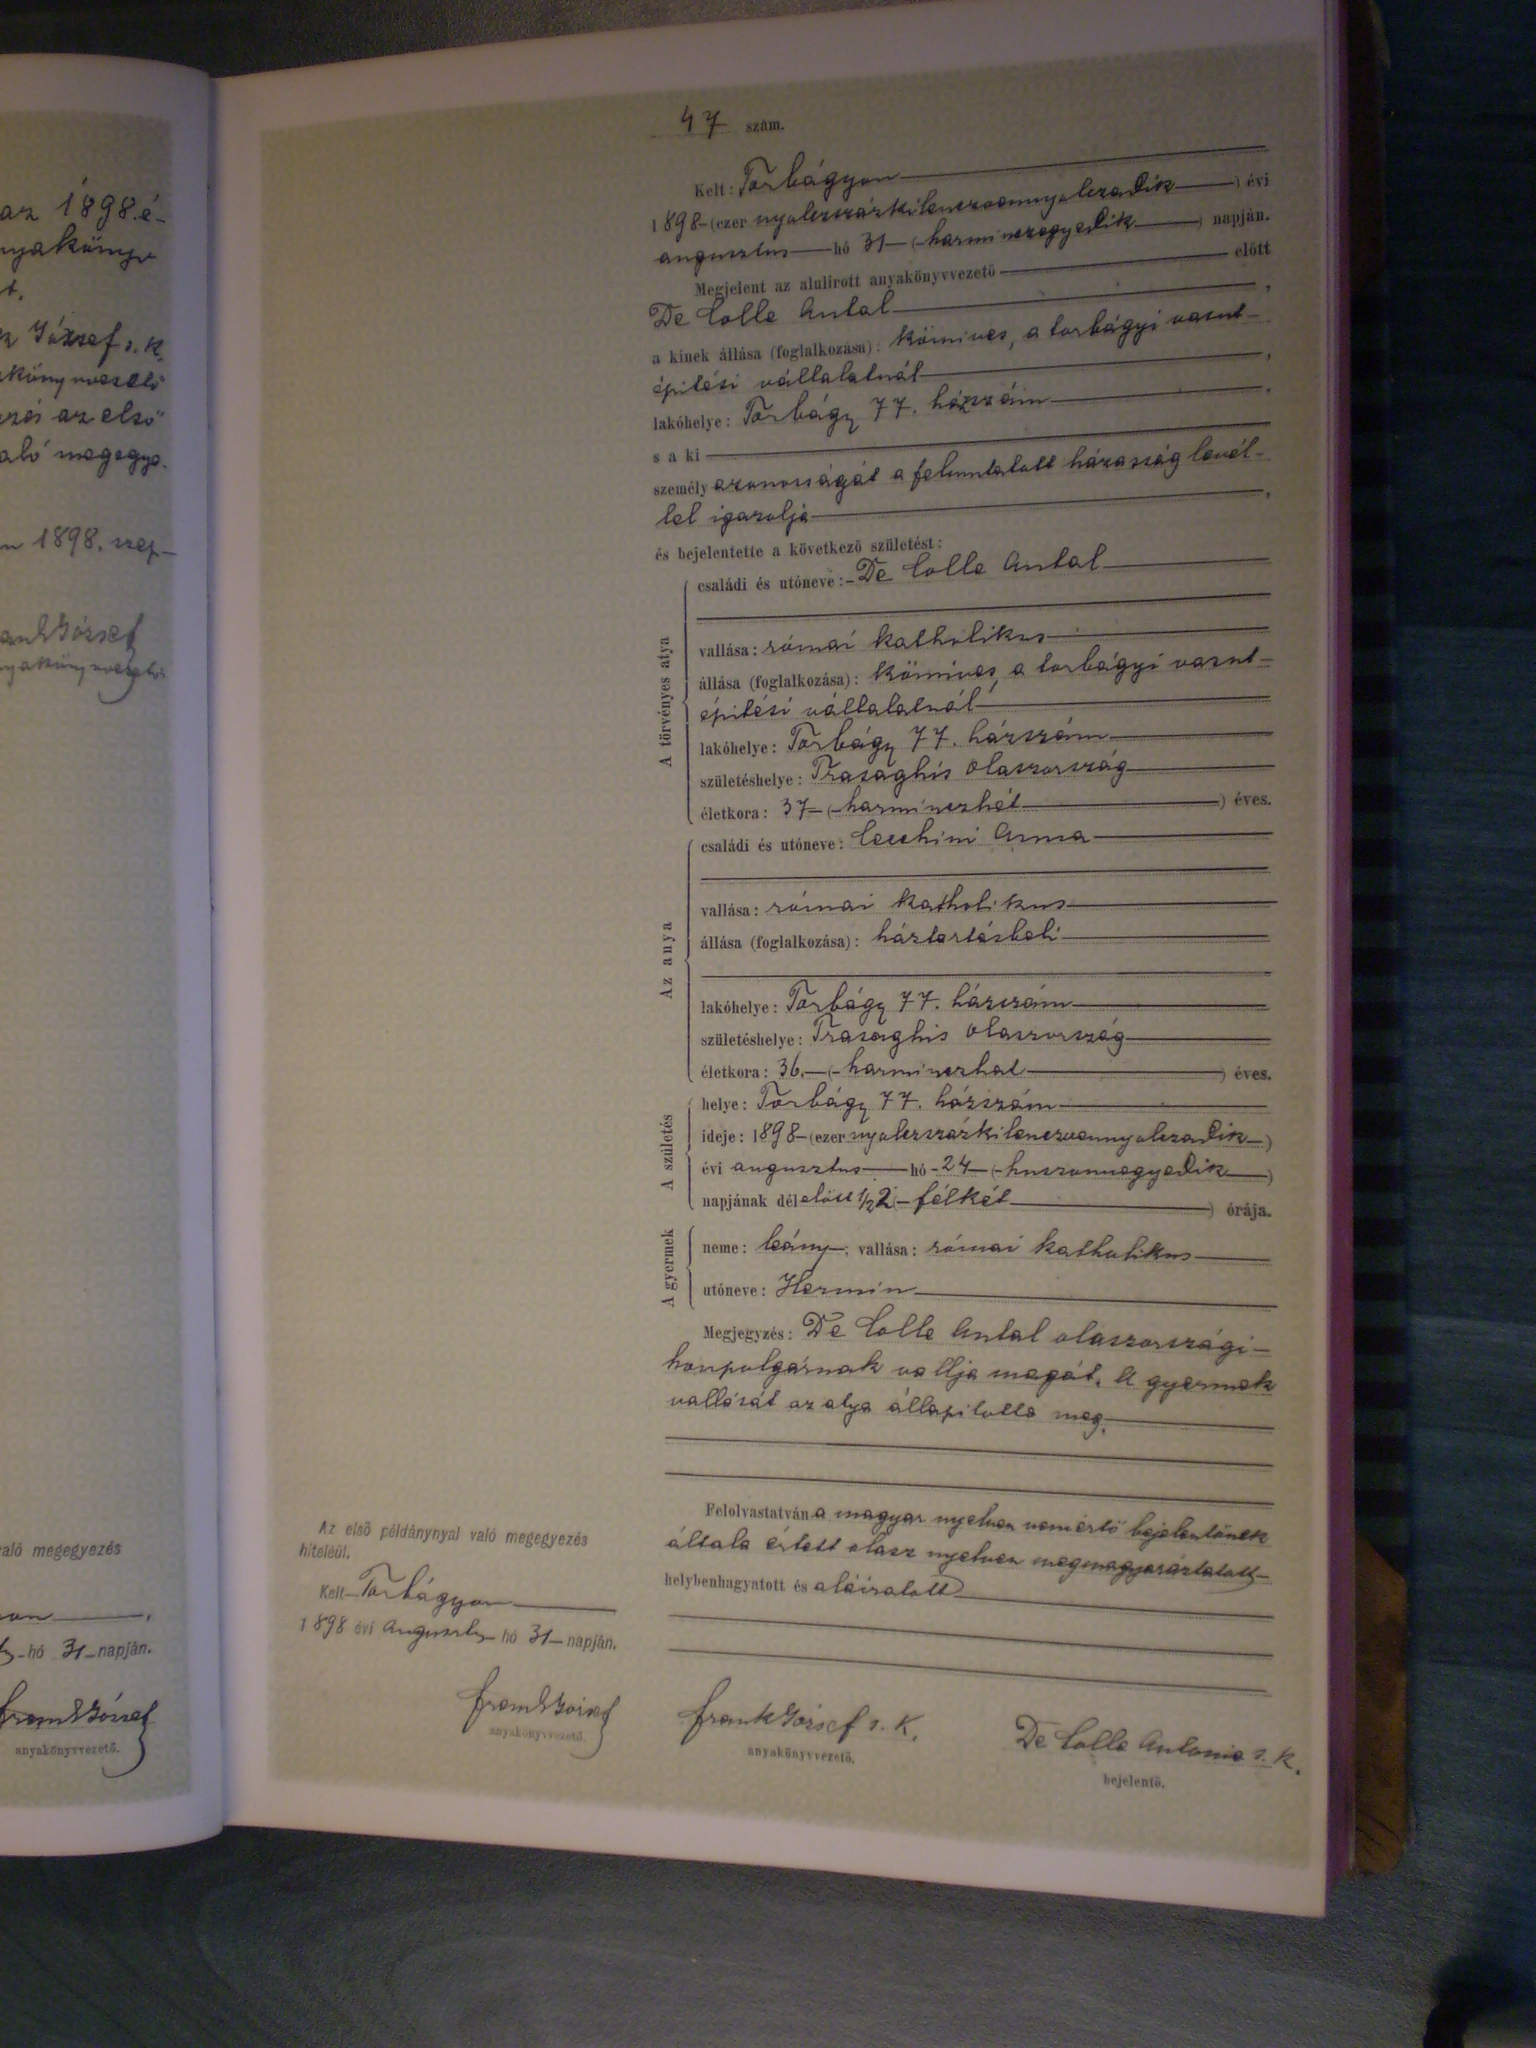 az 1898. é-
nyakönyv
t.
József s. k.
az első
való megegye-
1898. szep-
való megegyezés
hó 31 napján.
Frank József
anyakönyvvezető.
47 szám.
Kelt: Torbágyon
1898 (ezer nyolczszázkilenczvennyolczadik) évi
augusztus hó 31 (harminczegyedik) napján.
Megjelent az alulirott anyakönyvvezető előtt
De Colle Antal,
a kinek állása (foglalkozása): kőmives, a torbágyi vasut-
épitési vállalatnál,
lakóhelye: Torbágy 77. házszám,
s a ki
személyazonosságát a felmutatott házasság levél-
lel igazolja,
és bejelentette a következő születést:
A törvényes atya
családi és utóneve: De Colle Antal
vallása: római katholikus
állása (foglalkozása): kőmives, a torbágyi vasut-
épitési vállalatnál
lakóhelye: Torbágy 77. házszám
születéshelye: Trasaghis Olaszország
életkora: 37 (harminczhét) éves.
Az anya
családi és utóneve: Cecchini Anna
vallása: római katholikus
állása (foglalkozása): háztartásbeli
lakóhelye: Torbágy 77. házszám
születéshelye: Trasaghis Olaszország
életkora: 36. (harminczhat) éves.
A születés
helye: Torbágy 77. házszám
ideje: 1898 (ezer nyolczszázkilenczvennyolczadik)
évi augusztus hó 24 (huszonnegyedik)
napjának délelőtt 1/2 2 (félkét) órája.
A gyermek
neme: leány; vallása: római katholikus
utóneve: Hermin
Megjegyzés: De Colle Antal olaszországi
honpolgárnak vallja magát. A gyermek
vallását az atya állapitotta meg.
Felolvastatván a magyar nyelven nem értő bejelentőnek
általa értett olasz nyelven megmagyaráztatott
helybenhagyatott és aláiratott
Frank József s. k.
anyakönyvvezető.
De Colle Antonio s. k.
bejelentő.
Az első példánynyal való megegyezés
hiteléül.
Kelt Torbágyon
1898 évi Augusztus hó 31 napján.
Frank József
anyakönyvvezető.